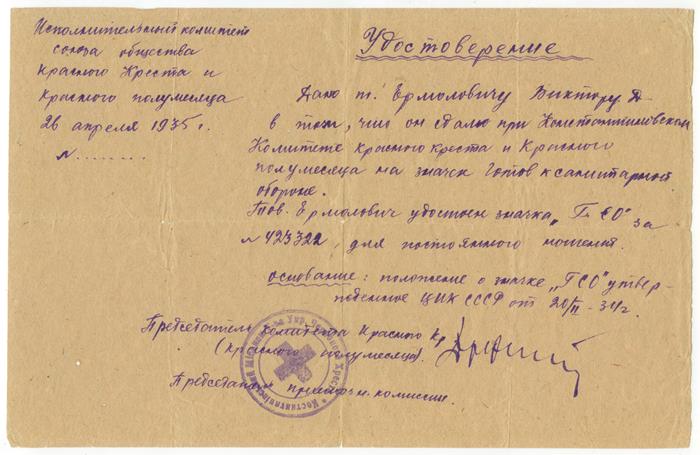 Исполнительный комитет
союза общества
Красного Креста и
Красного полумесяца
26 апреля 1935 г.
N ........
Удостоверение
Дано т. Ермоловичу Виктору Д
в том, что он сдал при Константиновском
Комитете Красного креста и Красного
полумесяца на значок Готов к санитарной
обороне.
Тов. Ермолович удостоен значка „ГСО" за
N 423322, для постоянного ношения.
основание: положение о значке „ГСО" утвер-
жденное ЦИК СССР от 20/II - 34 г.
Председатель комитета Красного Кр
(Красного полумесяца).
Председатель приемочн. комиссии.
Укр. Червон Хрест Костянтинівський